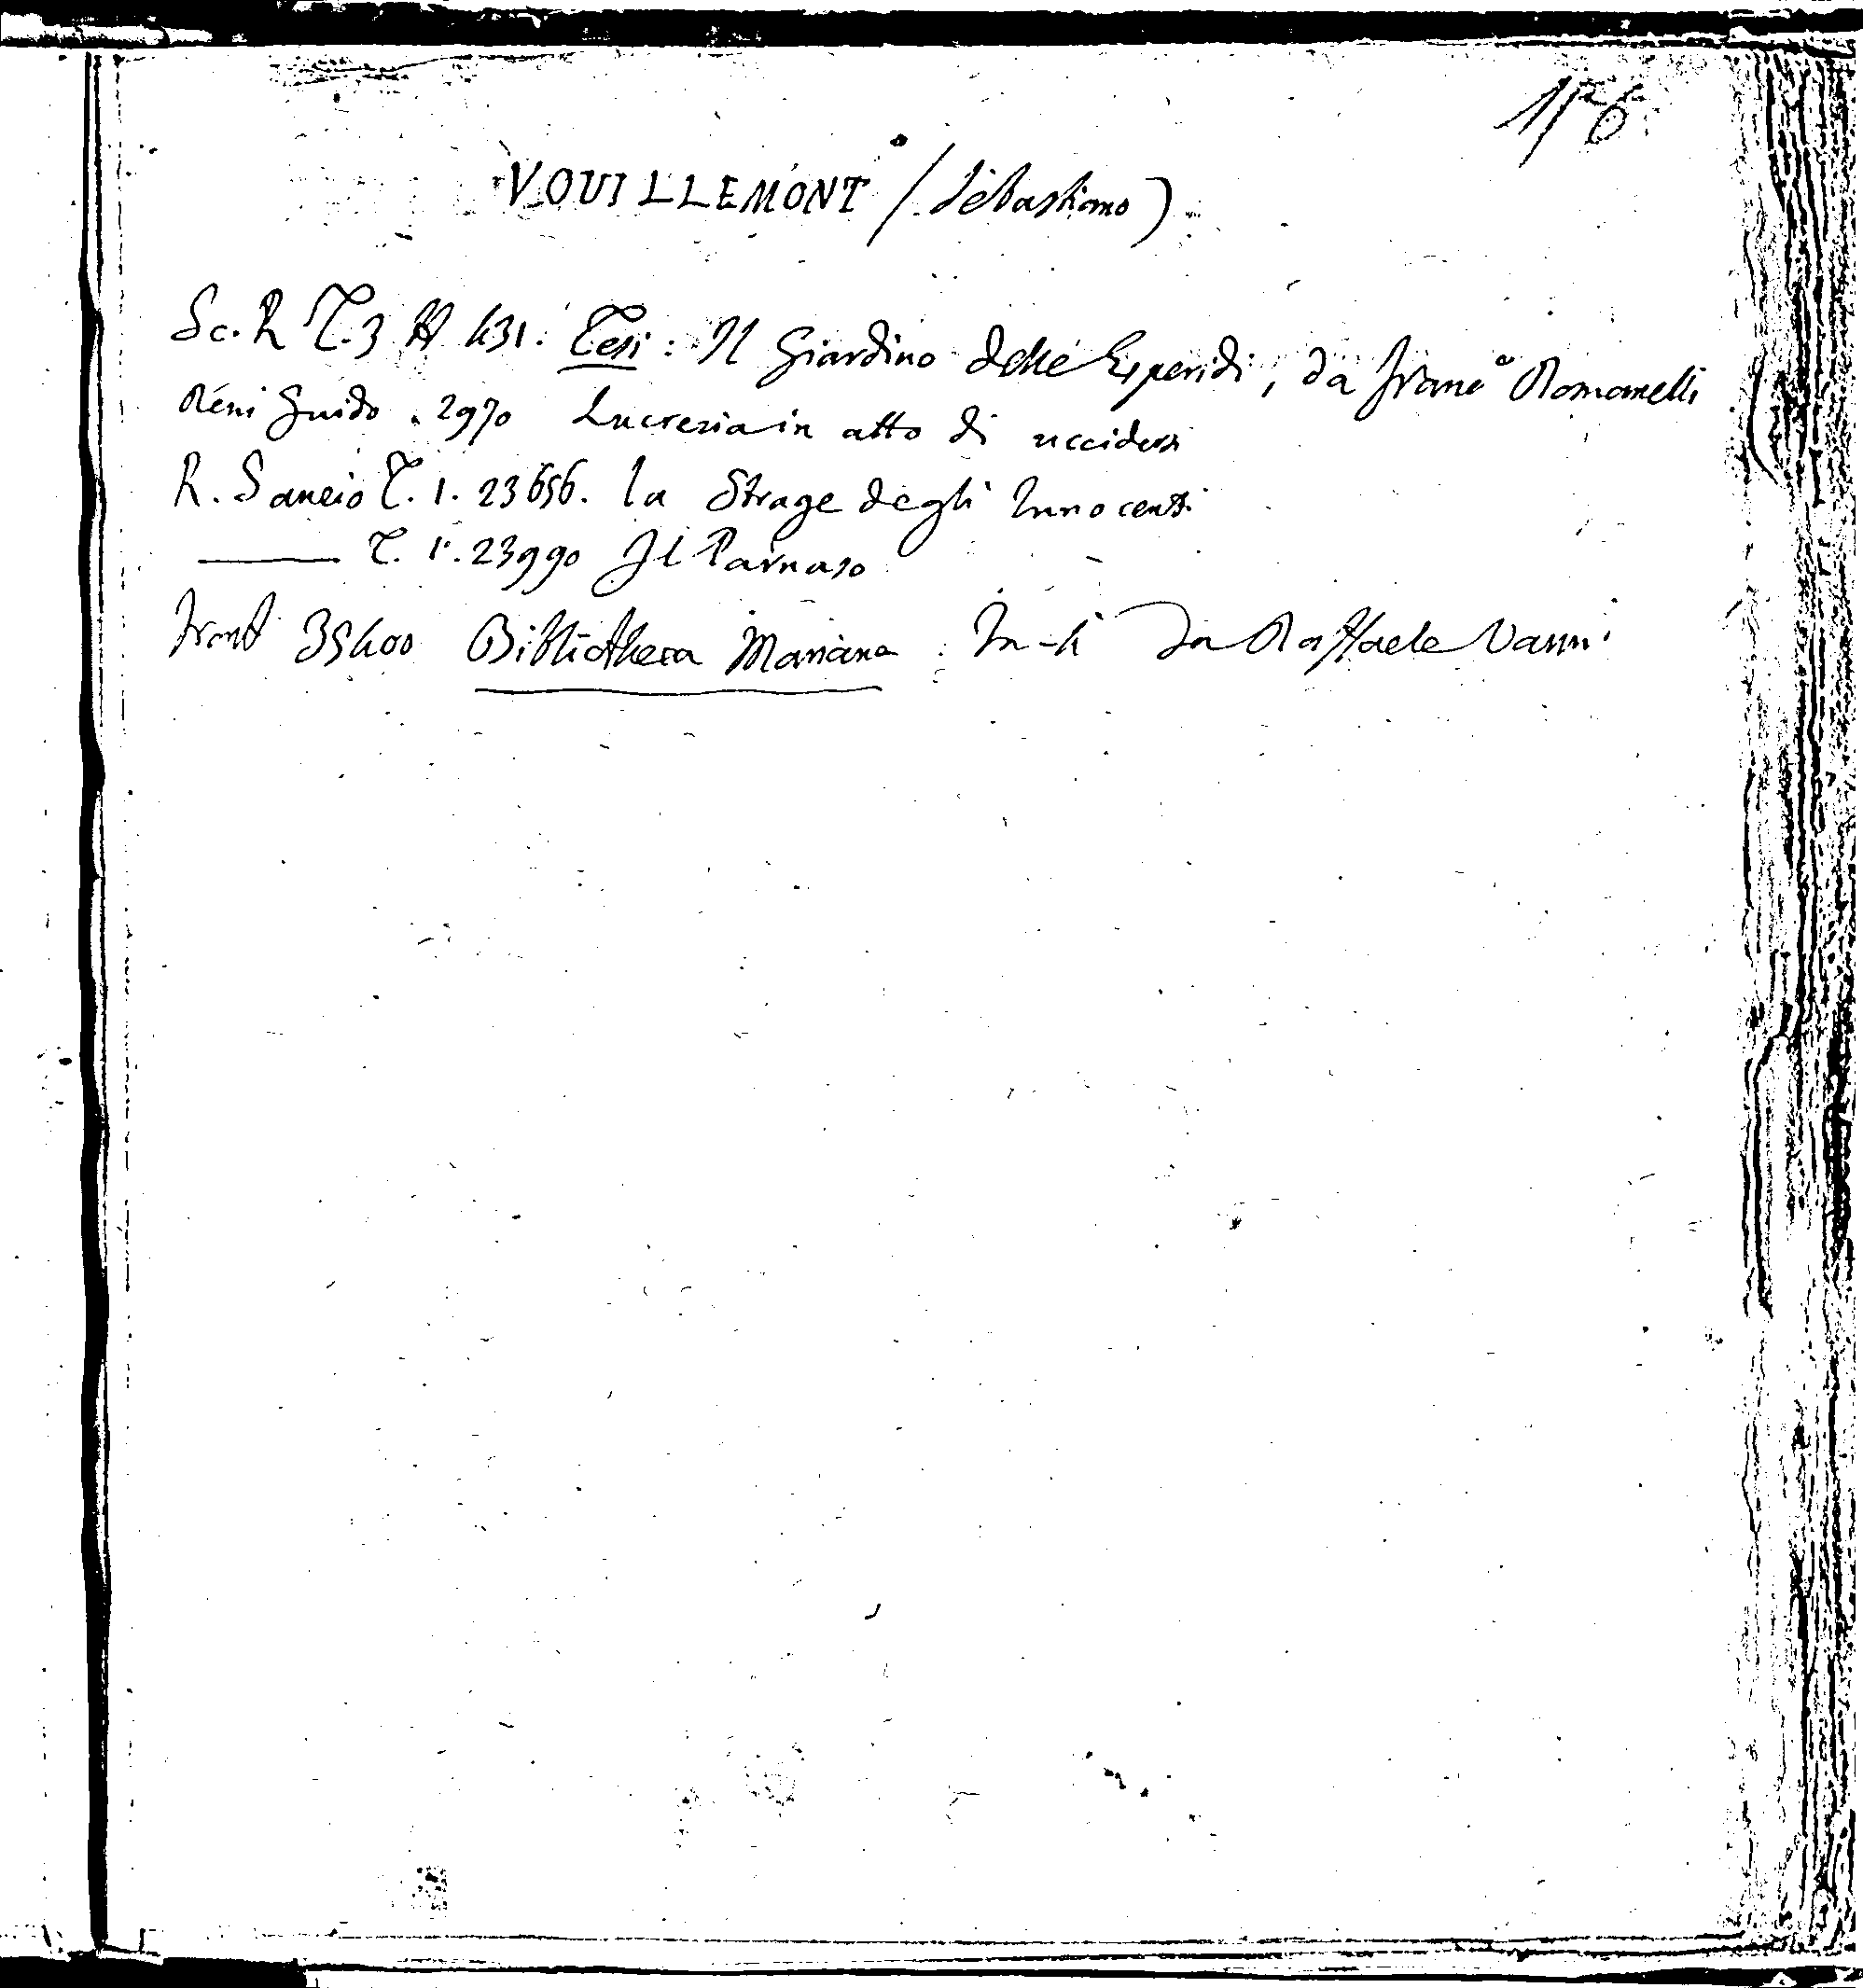 156
VOUILLEMONT (Sebastiano)
Sc. R T. 3 H 431. Tesi: Il Giardino delle Esperidi, da Franc° Romanelli
Reni Guido. 2970 Lucrezia in atto di uccidersi
R. Sancio T. 1. 23656. la Strage degli Innocenti
——— T. 1. 23990 Il Parnaso
Front 35400 Bibliotheca Mariana In-4 da Raffaele Vanni